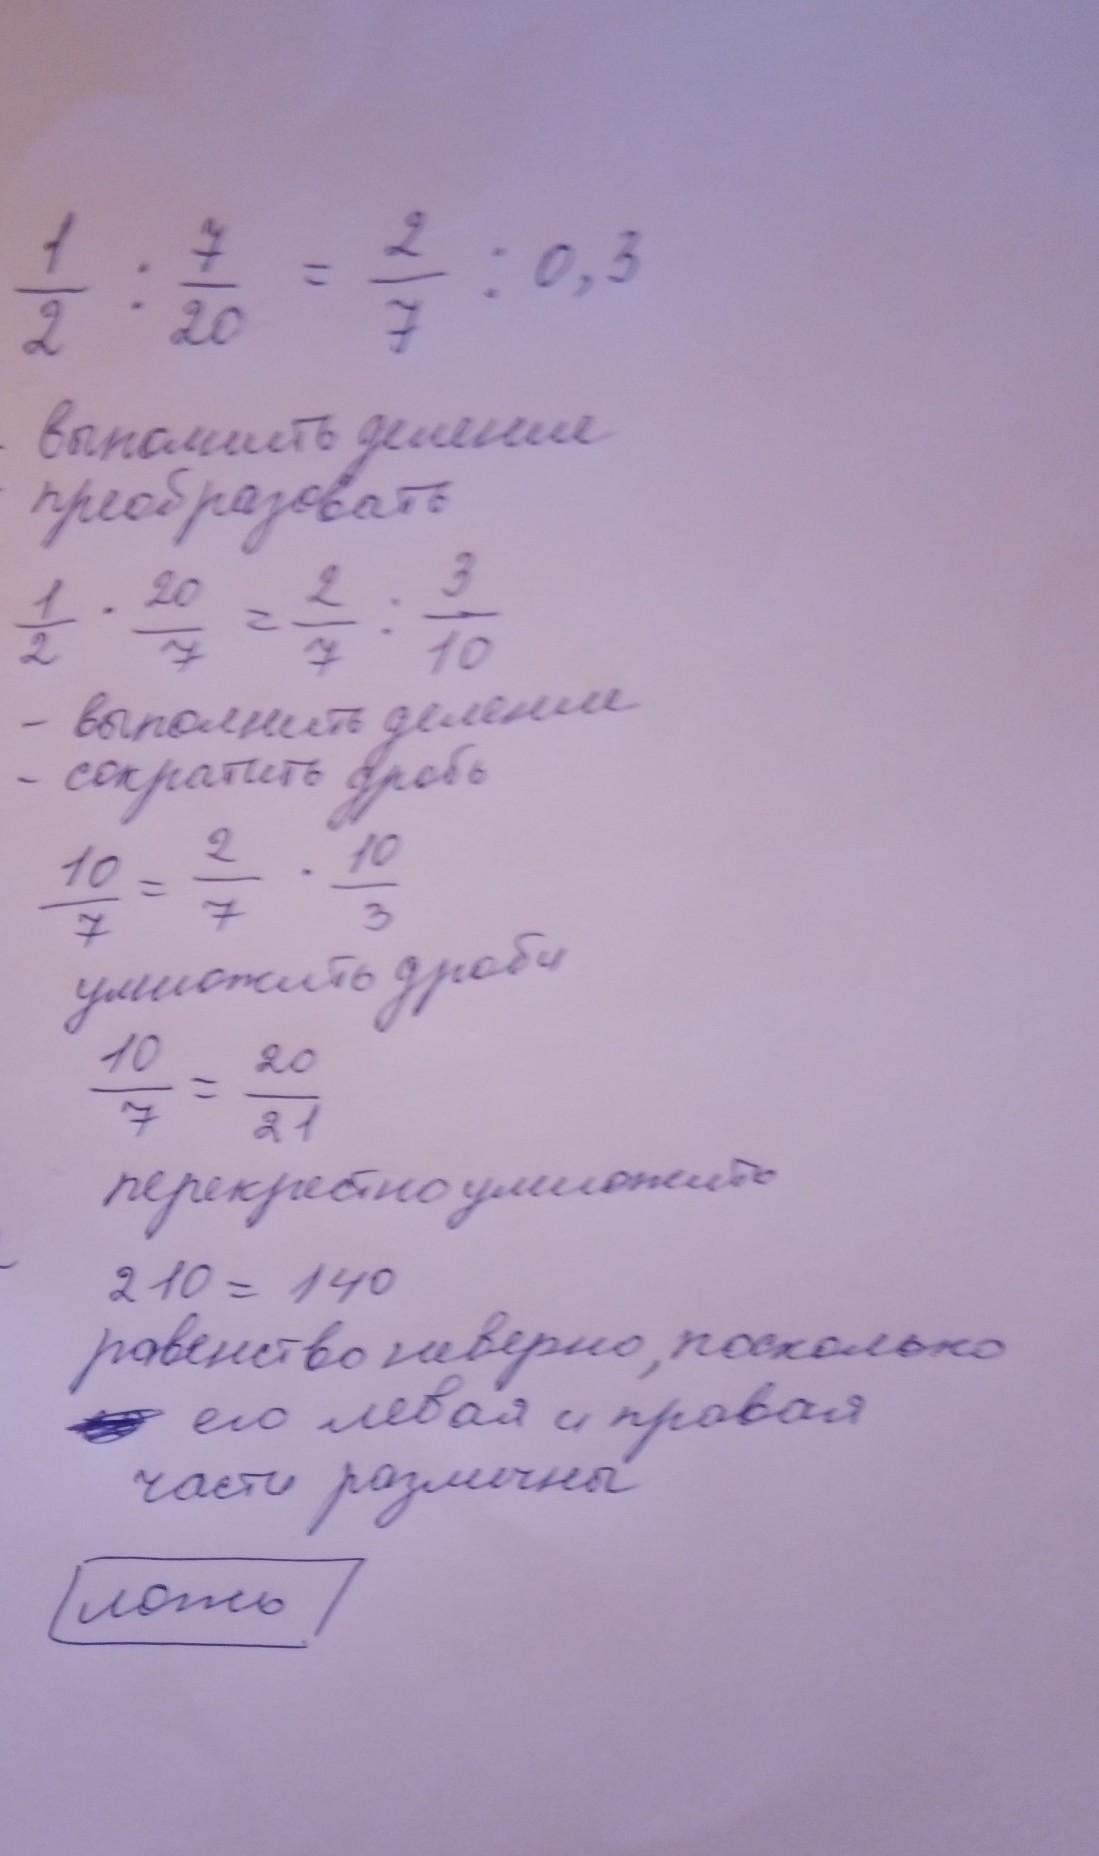 1/2 : 7/20 = 2/7 : 0,3
- выполнить деление
- преобразовать
1/2 · 20/7 = 2/7 : 3/10
- выполнить деление
- сократить дробь
10/7 = 2/7 · 10/3
умножить дроби
10/7 = 20/21
перекрестно умножить
210 = 140
равенство неверно, поскольку
его левая и правая
части различны
ложь